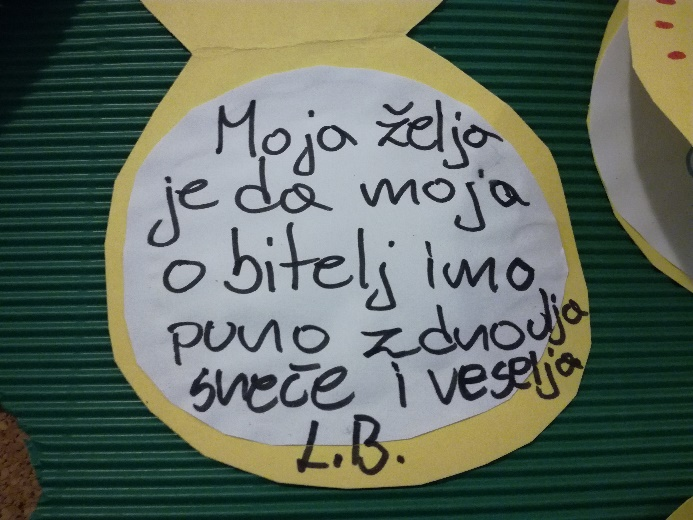 Moja želja
je da moja
obitelj ima
puno zdravlja
sreče i veselja
L.B.